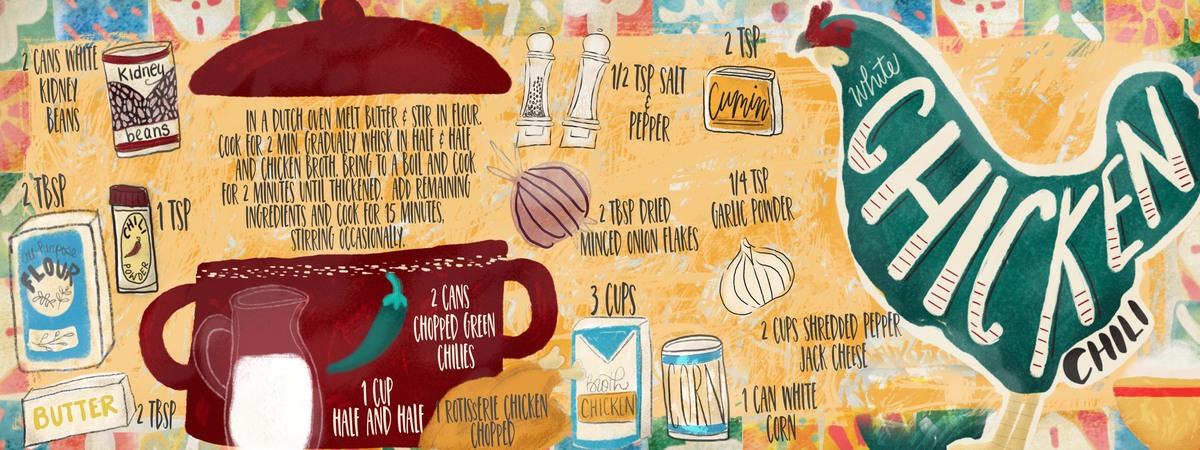 2 CANS WHITE
KIDNEY
BEANS
Kidney
beans
2 TBSP
All-Purpose
FLOUR
1 TSP
CHILI
POWDER
BUTTER
2 TBSP
IN A DUTCH OVEN MELT BUTTER & STIR IN FLOUR.
COOK FOR 2 MIN. GRADUALLY WHISK IN HALF & HALF
AND CHICKEN BROTH. BRING TO A BOIL AND COOK
FOR 2 MINUTES UNTIL THICKENED. ADD REMAINING
INGREDIENTS AND COOK FOR 15 MINUTES,
STIRRING OCCASIONALLY.
2 CANS
CHOPPED GREEN
CHILIES
1 CUP
HALF AND HALF
1 ROTISSERIE CHICKEN
CHOPPED
1/2 TSP SALT
&
PEPPER
2 TSP
Cumin
2 TBSP DRIED
MINCED ONION FLAKES
1/4 TSP
GARLIC POWDER
3 CUPS
Broth
CHICKEN
CORN
2 CUPS SHREDDED PEPPER
JACK CHEESE
1 CAN WHITE
CORN
White
CHICKEN
CHILI